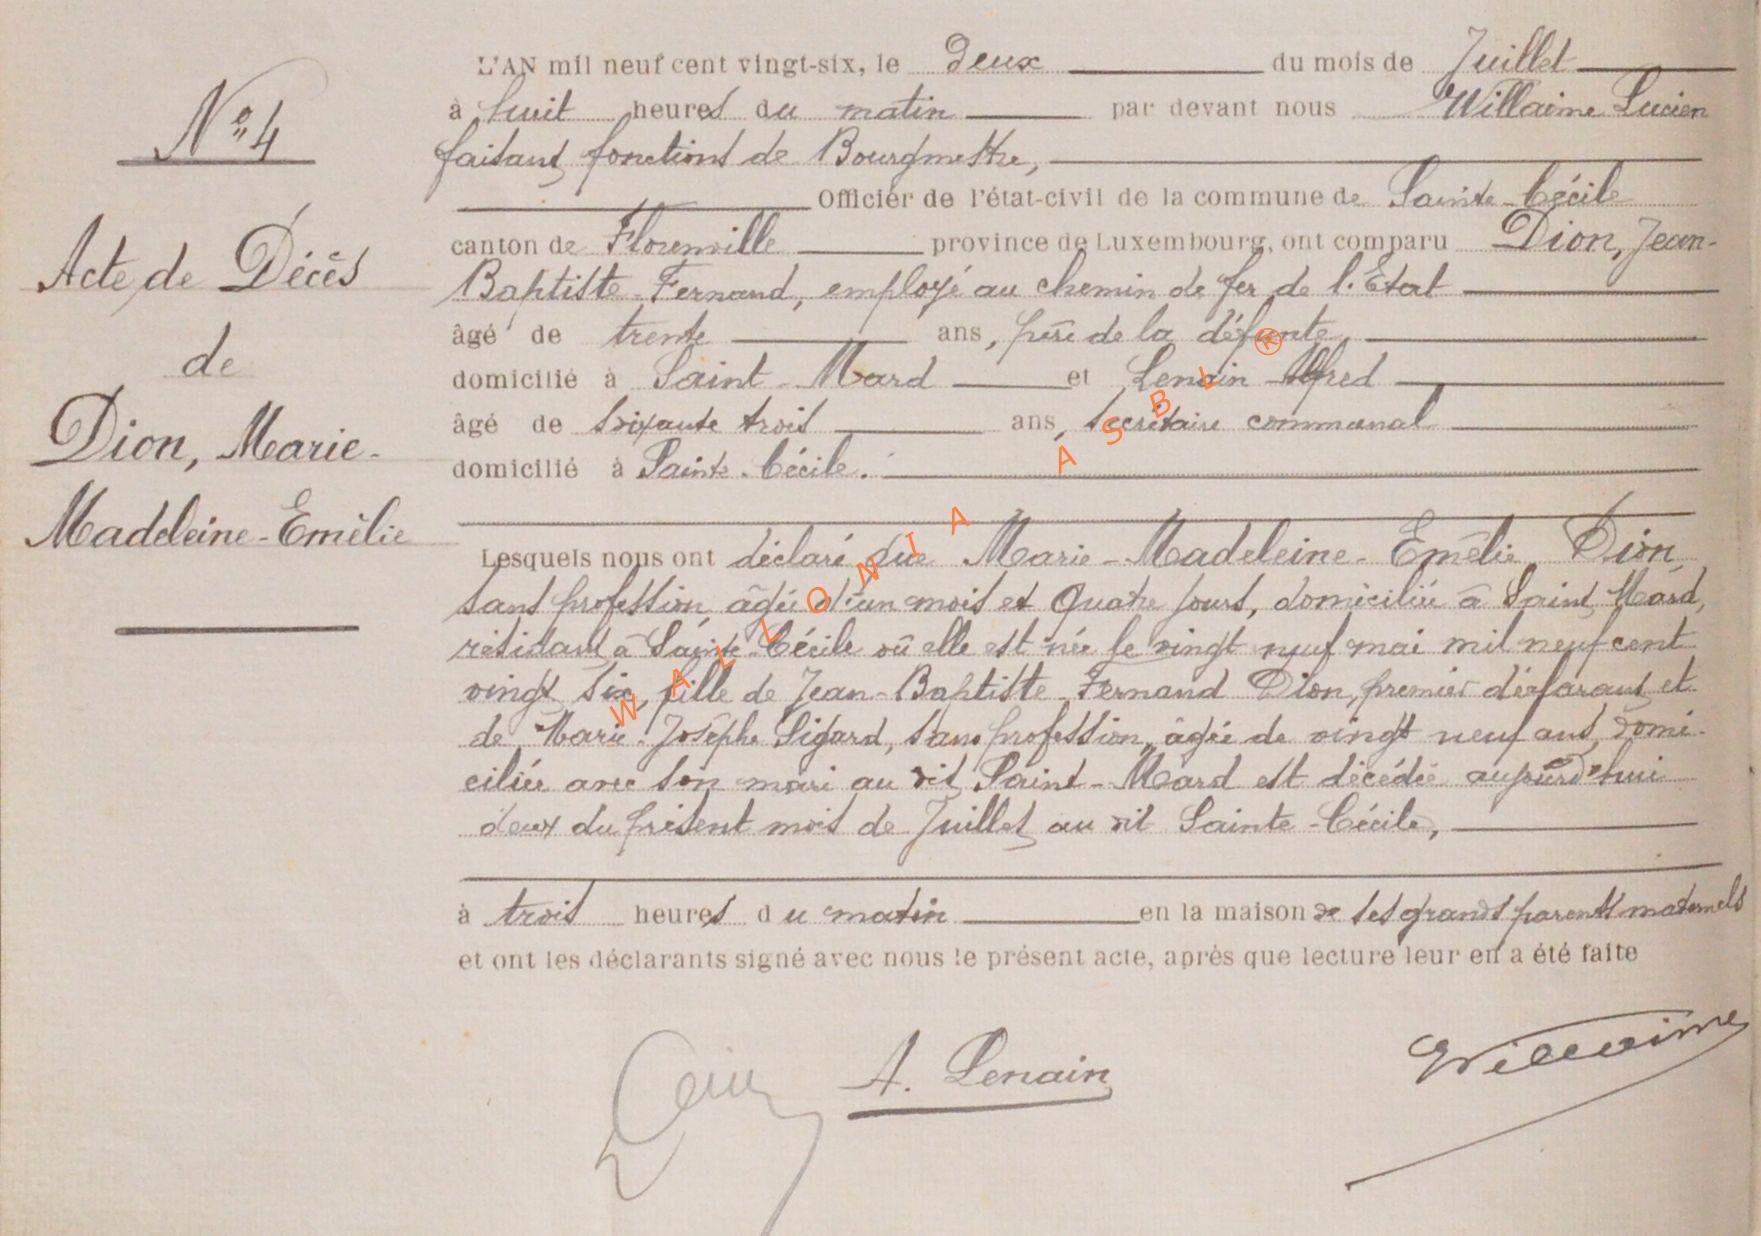 N° 4
Acte de Décès
de
Dion, Marie-
Madeleine-Emélie
L'AN mil neuf cent vingt-six, le deux du mois de Juillet
à huit heures du matin par devant nous Willaime Lucien
faisant fonctions de Bourgmestre,
Officier de l'état-civil de la commune de Sainte-Cécile
canton de Florenville province de Luxembourg, ont comparu Dion, Jean-
Baptiste-Fernand, employé au chemin de fer de l'Etat
âgé de trente ans, père de la défunte,
domicilié à Saint-Mard et Lenain Alfred
âgé de soixante trois ans, secrétaire communal
domicilié à Sainte-Cécile.
Lesquels nous ont déclaré que Marie-Madeleine-Emélie Dion,
sans profession, âgée d'un mois et quatre jours, domiciliée à Saint Mard,
résidant à Sainte-Cécile où elle est née le vingt neuf mai mil neuf cent
vingt six, fille de Jean-Baptiste-Fernand Dion, premier déclarant et
de Marie-Josèphe Sigard, sans profession, âgée de vingt neuf ans, domi-
ciliée avec son mari au dit Saint-Mard est décédée aujourd'hui
deux du présent mois de Juillet au dit Sainte-Cécile,
à trois heures du matin en la maison de ses grands parents maternels
et ont les déclarants signé avec nous le présent acte, après que lecture leur en a été faite
A. Lenain
Willaime
WALLONIA ASBL ®